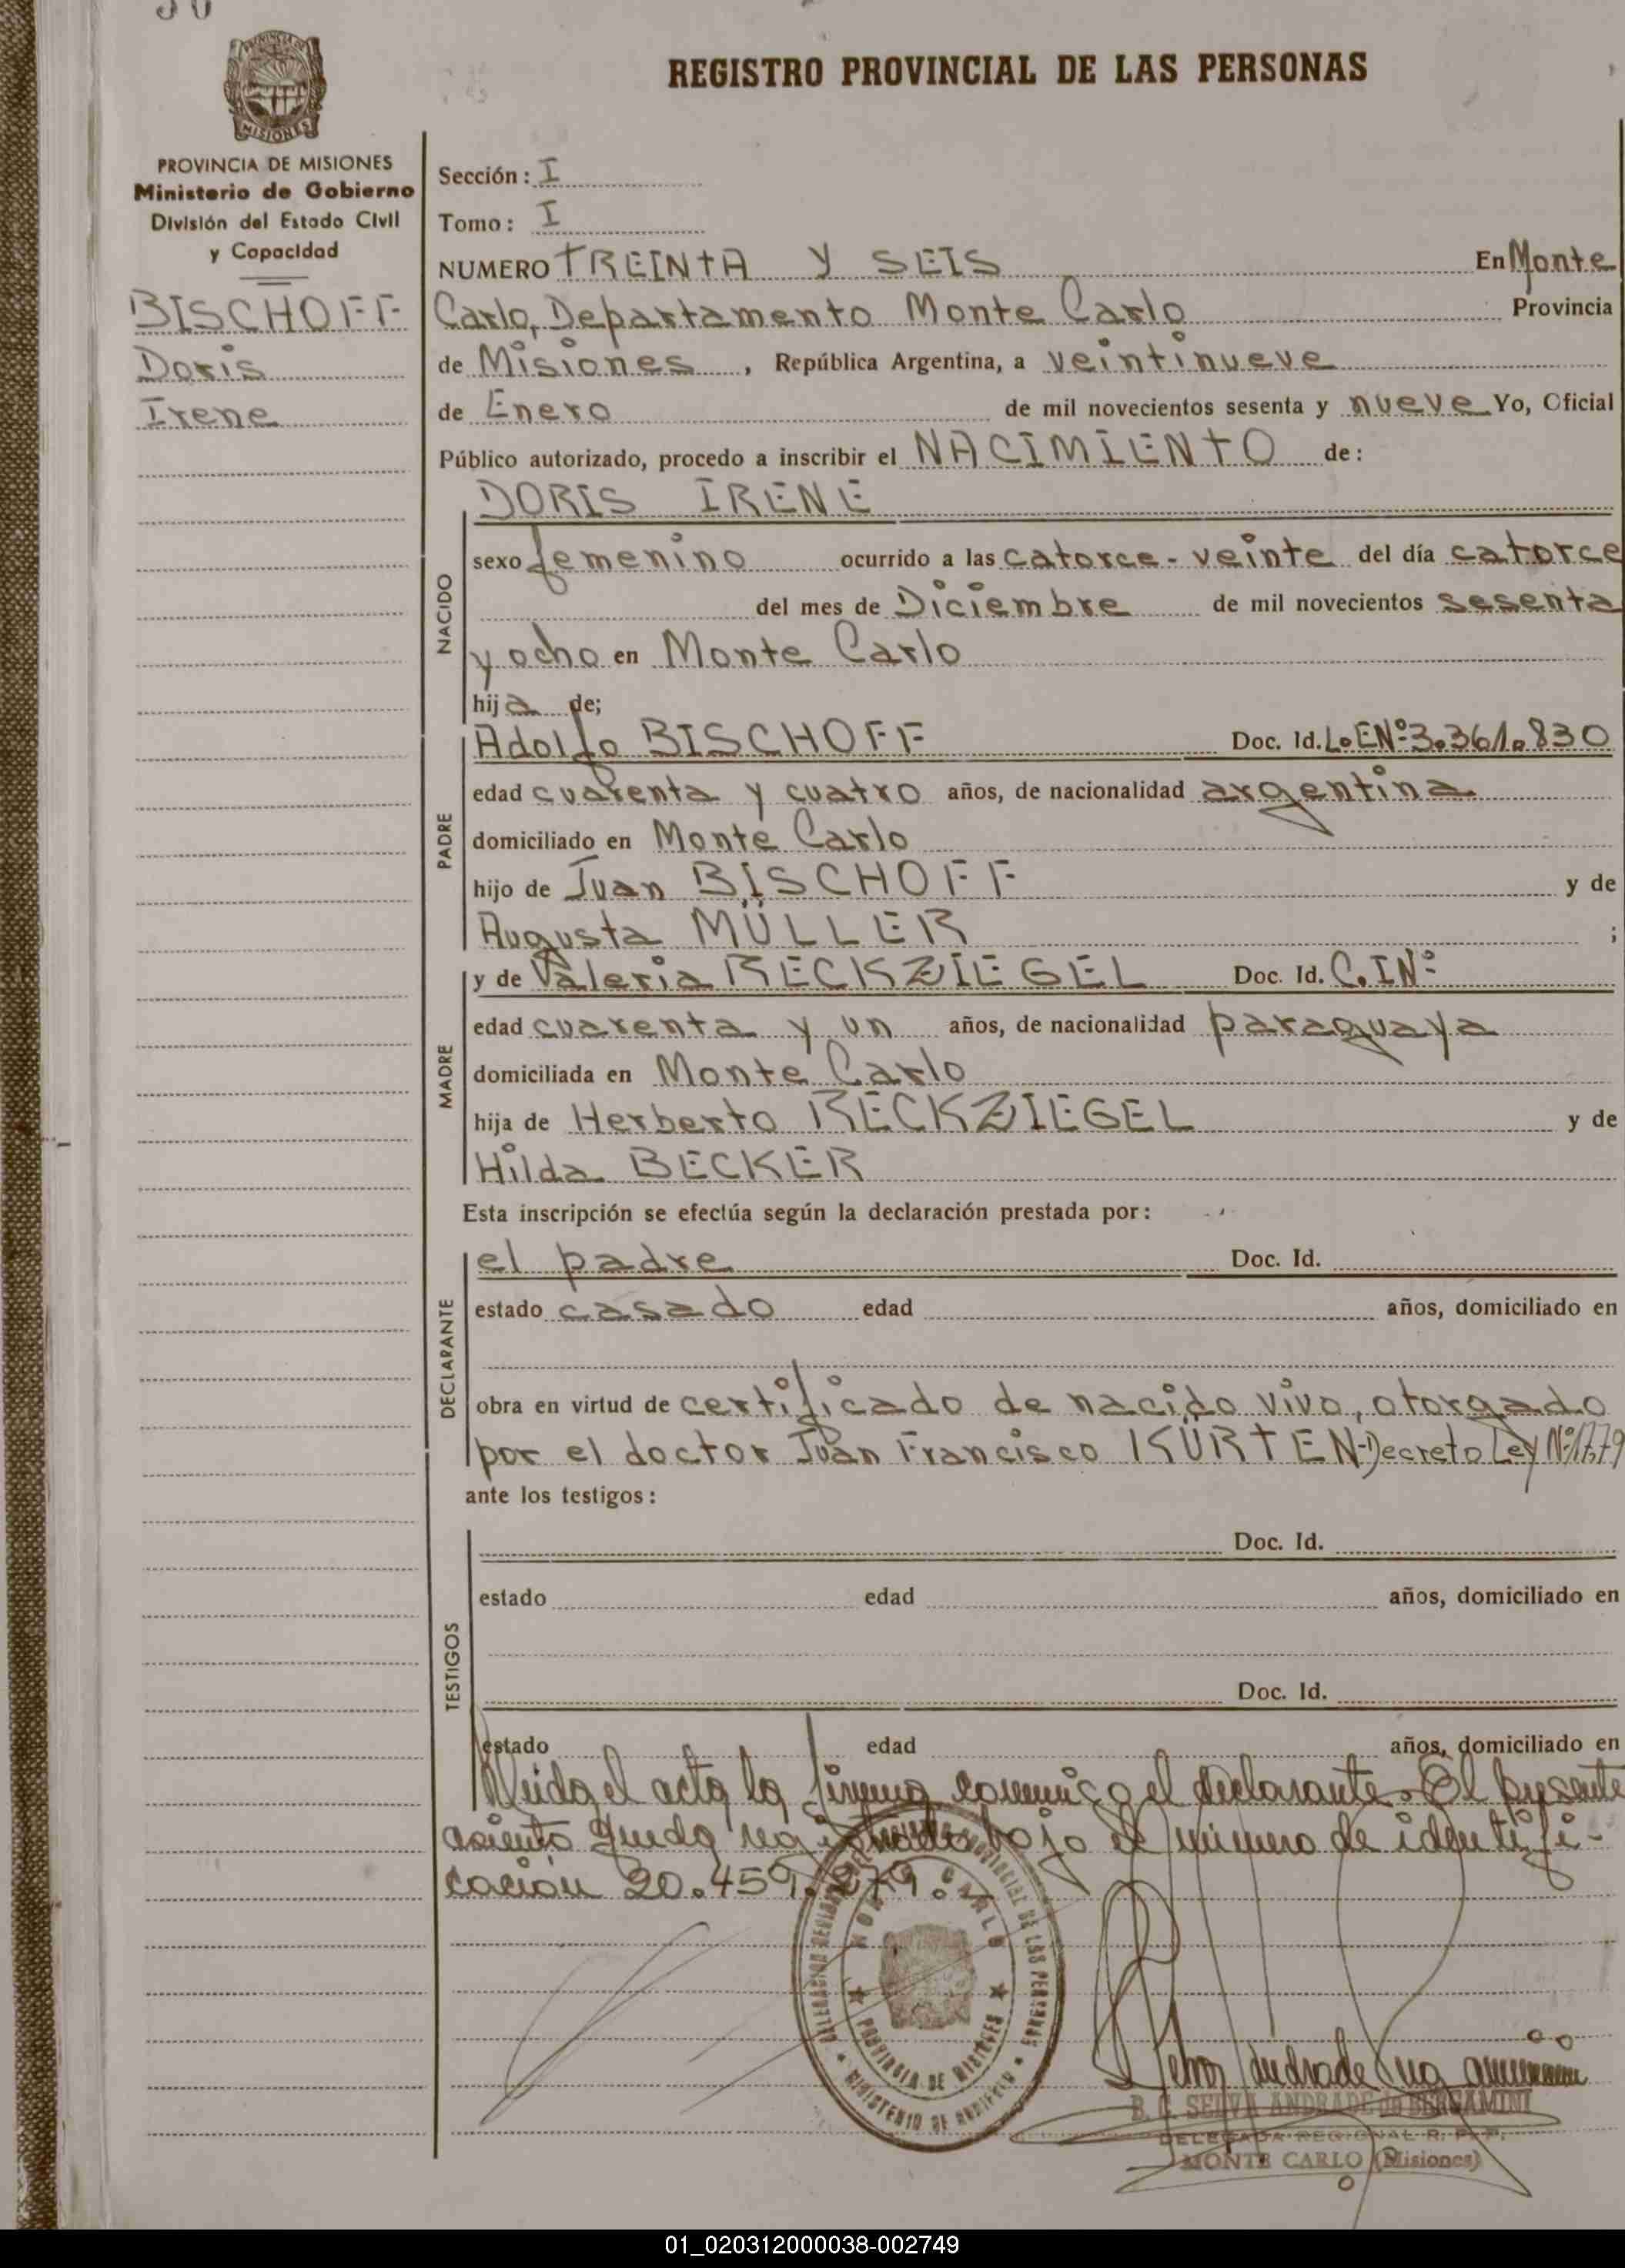 REGISTRO PROVINCIAL DE LAS PERSONAS
MISIONES
PROVINCIA DE MISIONES
Ministerio de Gobierno
División del Estado Civil
y Capacidad
BISCHOFF
Doris
Irene
Sección: I
Tomo: I
NUMERO TREINTA Y SEIS En Monte
Carlo, Departamento Monte Carlo Provincia
de Misiones, República Argentina, a veintinueve
de Enero de mil novecientos sesenta y nueve Yo, Oficial
Público autorizado, procedo a inscribir el NACIMIENTO de:
NACIDO
DORIS IRENE
sexo femenino ocurrido a las catorce-veinte del día catorce
del mes de Diciembre de mil novecientos sesenta
y ocho en Monte Carlo
hija de;
PADRE
Adolfo BISCHOFF Doc. Id. L.EN:3.361.830
edad cuarenta y cuatro años, de nacionalidad argentina
domiciliado en Monte Carlo
hijo de Juan BISCHOFF y de
Augusta MÜLLER ;
MADRE
y de Valeria RECKZIEGEL Doc. Id. C.IN:
edad cuarenta y un años, de nacionalidad paraguaya
domiciliada en Monte Carlo
hija de Herberto RECKZIEGEL y de
Hilda BECKER
Esta inscripción se efectúa según la declaración prestada por:
DECLARANTE
el padre Doc. Id.
estado casado edad años, domiciliado en
obra en virtud de certificado de nacido vivo, otorgado
por el doctor Juan Francisco KÜRTEN-Decreto Ley Nº1779
ante los testigos:
TESTIGOS
Doc. Id.
estado edad años, domiciliado en
Doc. Id.
estado edad años, domiciliado en
Leida el acta la firma conmigo el declarante. El presente
asiento queda registrado bajo el número de identifi-
cación 20.459.279.
MONTE CARLO
PROVINCIA DE MISIONES
MINISTERIO DE GOBIERNO
B. C. SELVA ANDRADE de BERGAMINI
DELEGADA REGIONAL R. P. P.
MONTE CARLO (Misiones)
01_020312000038-002749